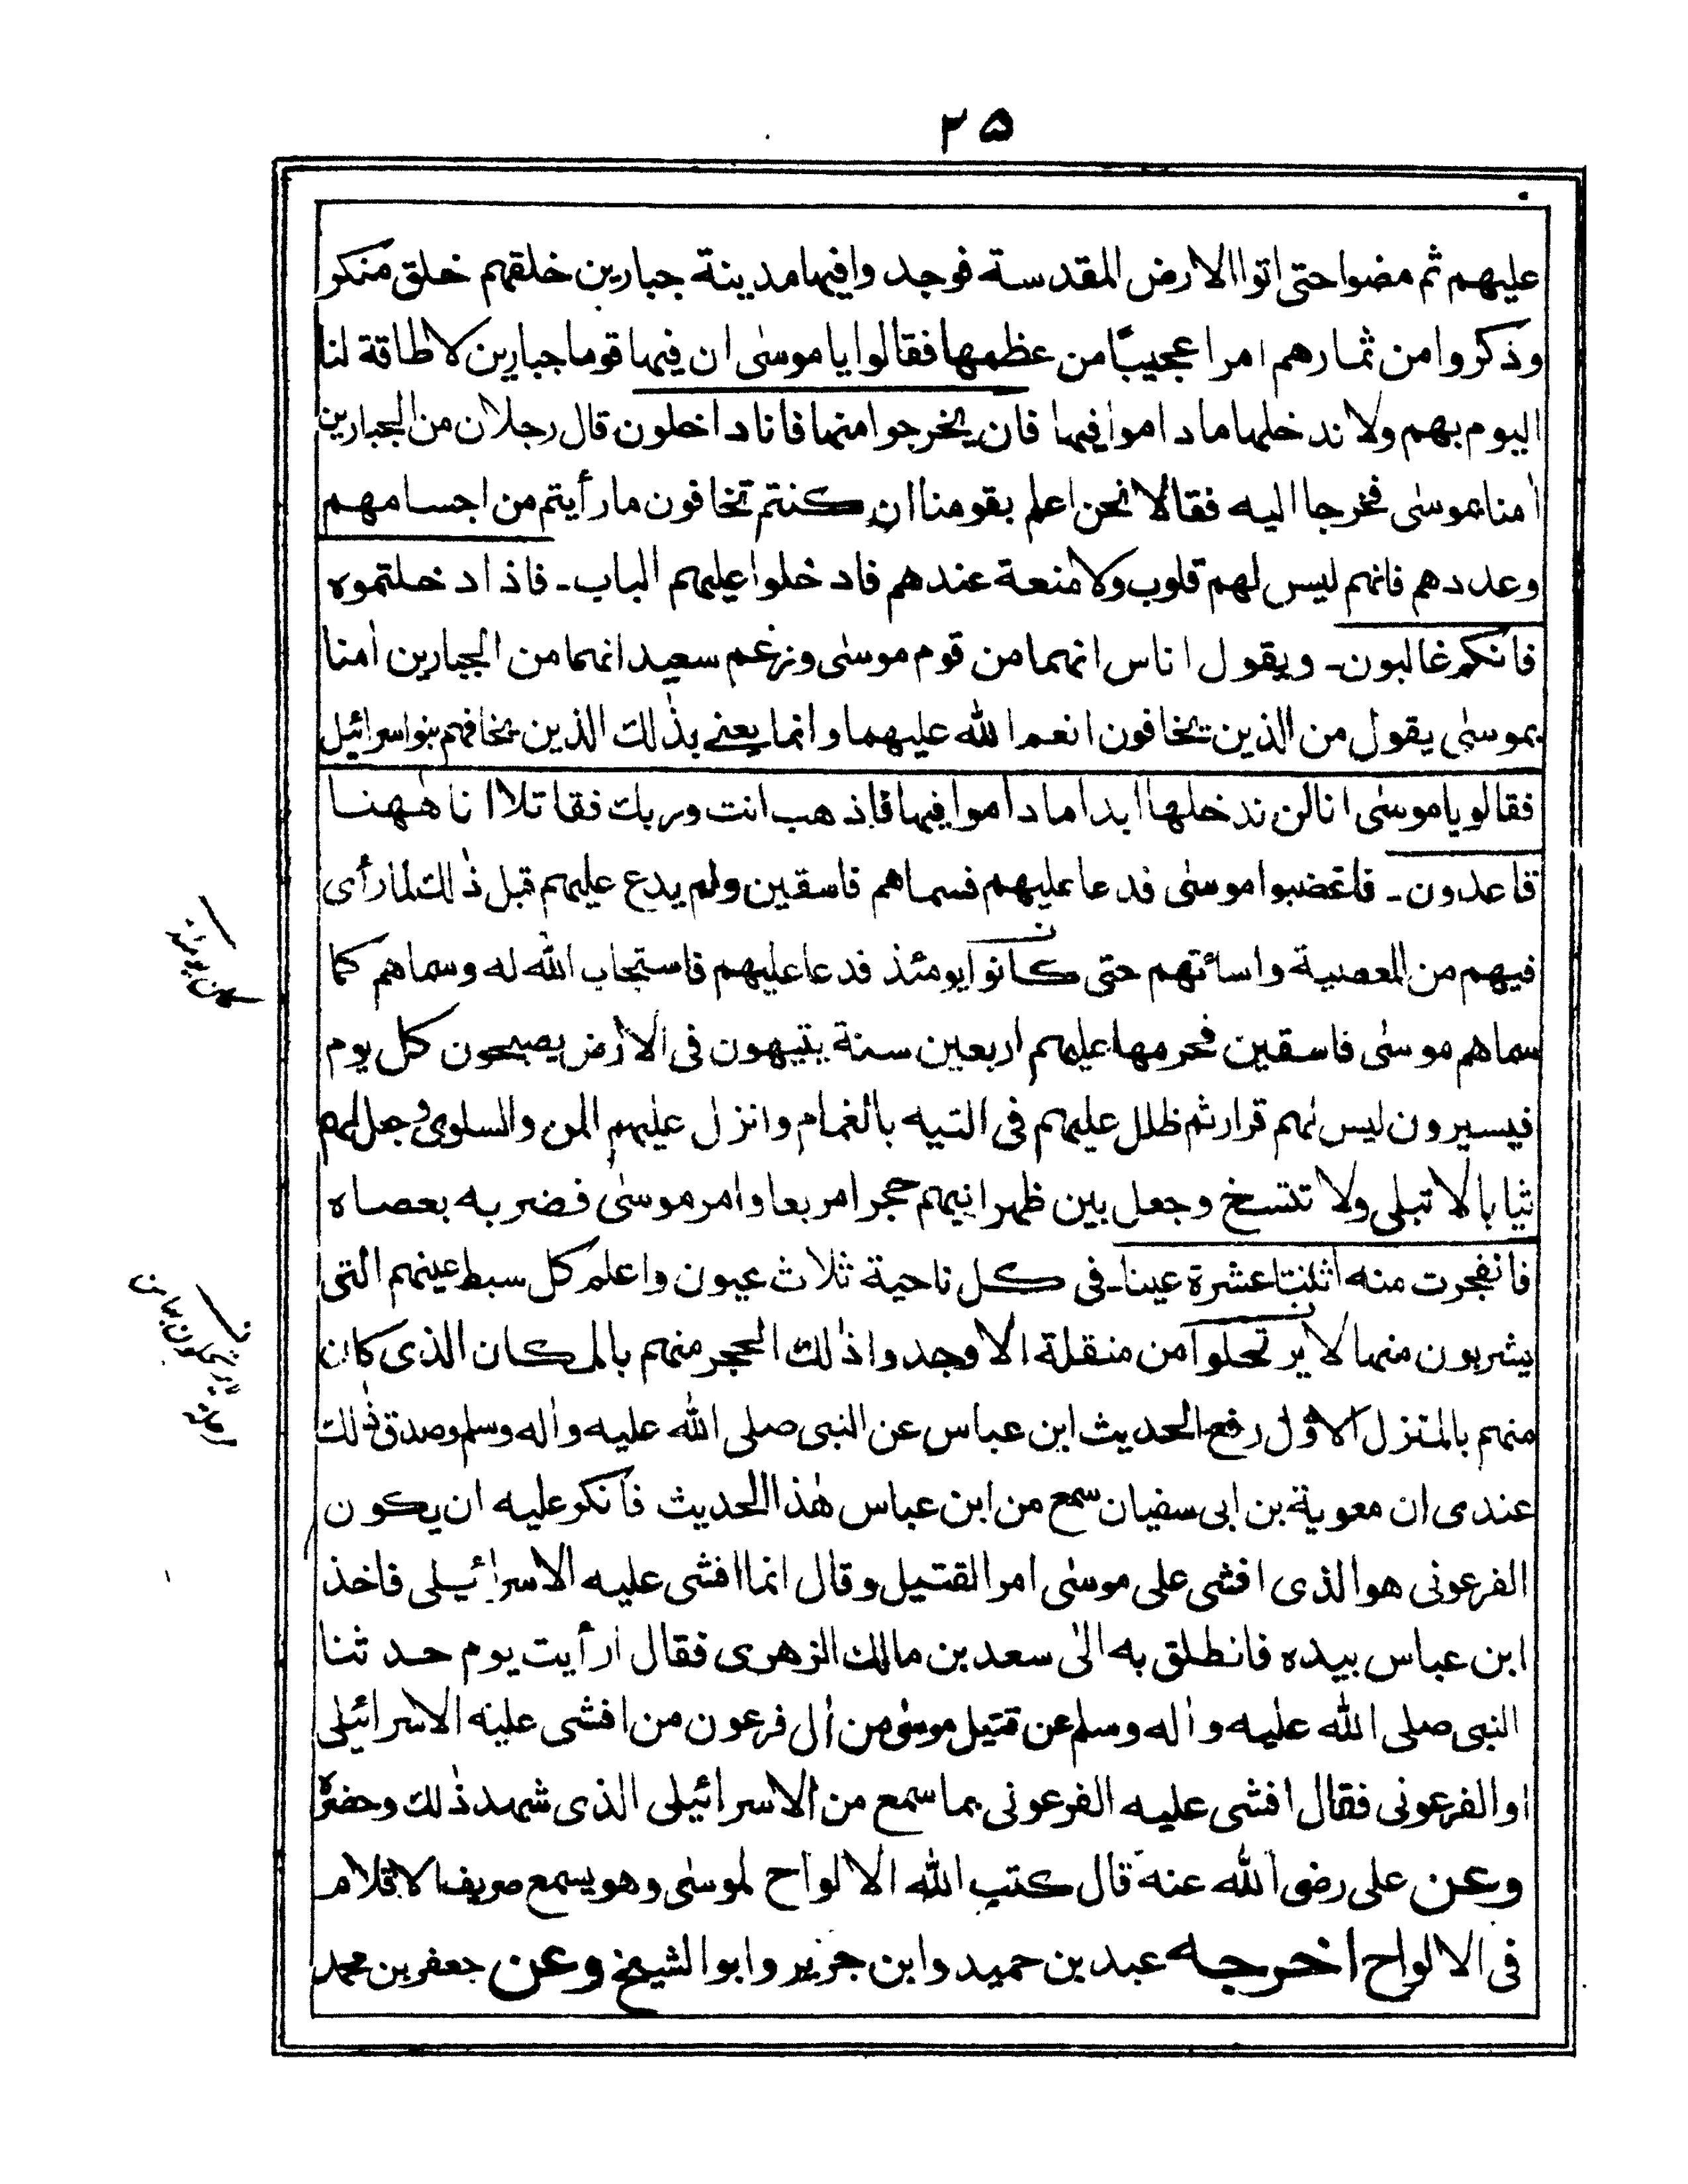 ٢٥
عليهم ثم مضوا حتى اتوا الارض المقدسة فوجدوا فيها مدينة جبارين خلقهم خلق منكر
وذكروا من ثمارهم امرا عجيبًا من عظمها فقالوا يا موسىٰ ان فيها قوما جبارين لا طاقة لنا
اليوم بهم ولا ندخلها ما داموا فيها فان يخرجوا منها فانا داخلون قال رجلان من الجبارين
اٰمنا بموسىٰ فخرجا اليه فقالا نحن اعلم بقومنا ان كنتم تخافون ما رأيتم من اجسامهم
وعددهم فانهم ليس لهم قلوب ولا منعة عندهم فادخلوا عليهم الباب ـ فاذا دخلتموه
فانكم غالبون ـ ويقول اناس انهما من قوم موسىٰ وزعم سعيد انهما من الجبارين اٰمنا
بموسىٰ يقول من الذين يخافون انعم الله عليهما وانما يعنے بذٰلك الذين يخافهم بنو اسرائيل
فقالو يا موسىٰ انا لن ندخلها ابدا ما داموا فيها فاذهب انت وربك فقاتلا انا هٰهنا
قاعدون ـ فلغضبوا موسىٰ فدعا عليهم فسماهم فاسقين ولم يدع عليهم قبل ذٰلك لما رأى
فيهم من المعصية واسائتهم حتى كانوا يومئذ فدعا عليهم فاستجاب الله له وسماهم كما
سماهم موسىٰ فاسقين فحرمها عليهم اربعين سنة يتيهون فى الارض يصبحون كل يوم
فيسيرون ليس لهم قرار ثم ظلل عليهم فى التيه بالغمام وانزل عليهم المن والسلوى وجعل لهم
ثيابا لا تبلى ولا تتسخ وجعل بين ظهرانيهم حجرا مربعا وامر موسىٰ فضربه بعصاه
فانفجرت منه اثلنتا عشرة عينا ـ فى كل ناحية ثلاث عيون واعلم كل سبط عينهم التى
يشربون منها لا يرتحلوا من منقلة الا وجدوا ذٰلك الحجر منهم بالمكان الذى كان
منهم بالمنزل الاول رفع الحديث ابن عباس عن النبى صلى الله عليه واٰله وسلم وصدق ذٰلك
عندى ان معوية بن ابى سفيان سمع من ابن عباس هٰذا الحديث فانكر عليه ان يكون
الفرعونى هو الذى افشى على موسىٰ امر القتيل وقال انما افشى عليه الاسرائيلى فاخذ
ابن عباس بيده فانطلق به الىٰ سعد بن مالك الزهرى فقال ارأيت يوم حدثنا
النبى صلى الله عليه واٰله وسلم عن قتيل موسىٰ من اٰل فرعون من افشى عليه الاسرائيلى
او الفرعونى فقال افشى عليه الفرعونى بما سمع من الاسرائيلى الذى شهد ذٰلك وحضره
وعن على رضى الله عنه قال كتب الله الالواح لموسىٰ وهو يسمع صريف الاقلام
فى الالواح اخرجه عبد بن حميد وابن جرير وابو الشيخ وعن جعفر بن محمد